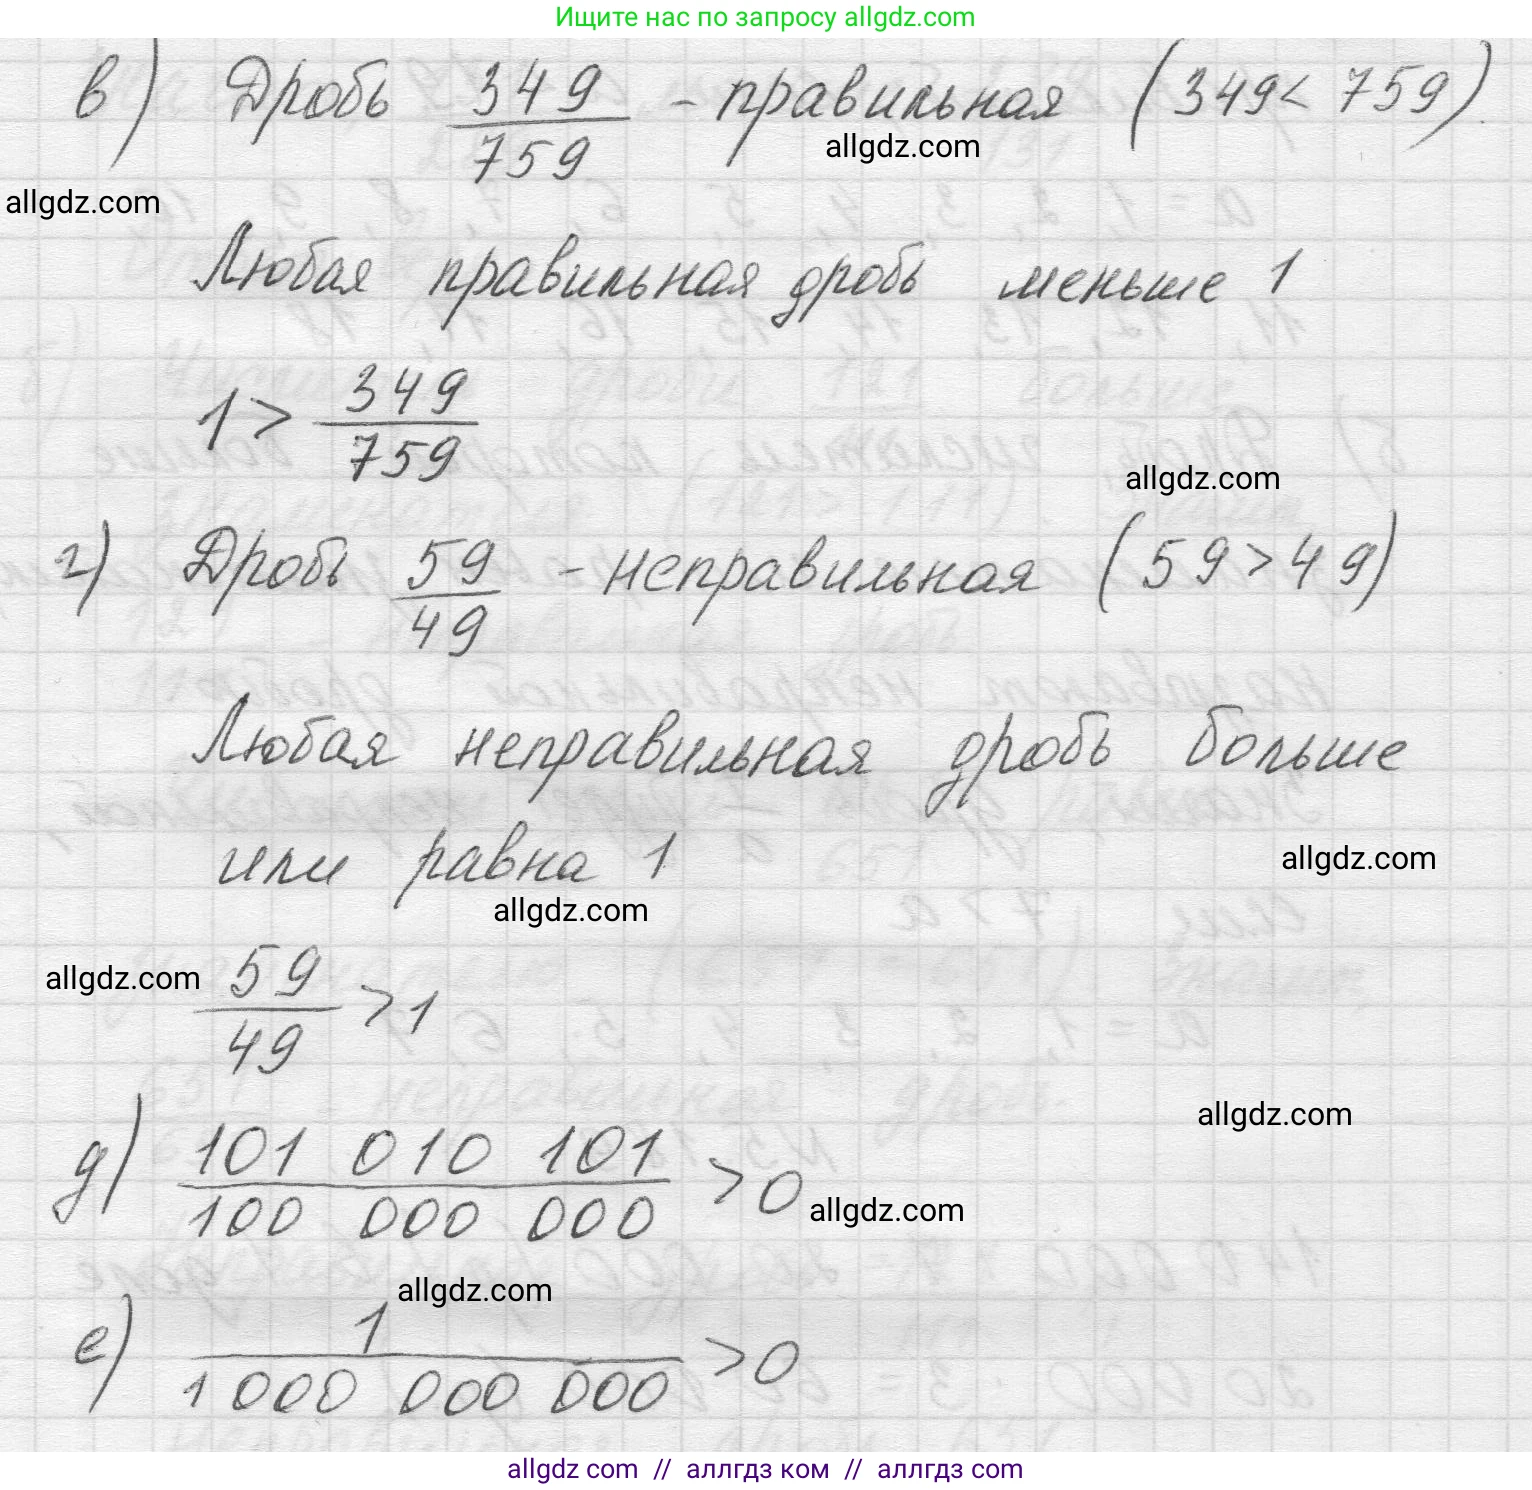 Ищите нас по запросу allgdz.com
в) Дробь 349/759 - правильная (349 < 759).
allgdz.com
allgdz.com
Любая правильная дробь меньше 1
1 > 349/759
allgdz.com
г) Дробь 59/49 - неправильная (59 > 49)
Любая неправильная дробь больше
или равна 1
allgdz.com
allgdz.com
allgdz.com
59/49 > 1
allgdz.com
д) 101 010 101/100 000 000 > 0
allgdz.com
allgdz.com
е) 1/1 000 000 000 > 0
allgdz com // аллгдз ком // аллгдз com